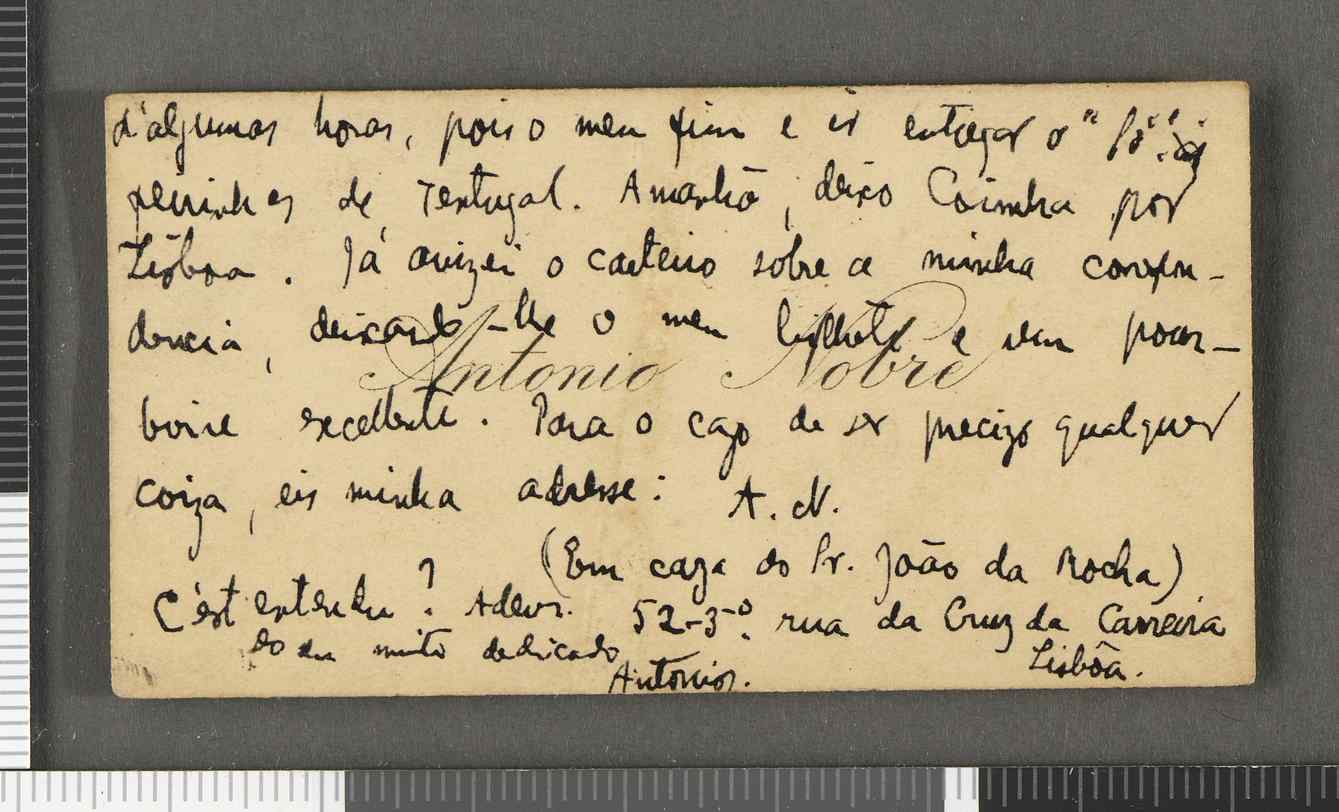 d'algumas horas, pois o meu fim e ir entregar o "Só" ás
peninhas de Tentugal. Amanhã, deixo Coimbra por
Lisboa. Já avizei o carteiro sobre a minha correspon-
dencia, deixando-lhe o meu bilhete e um pour-
Antonio Nobre
boire excellente. Para o cazo de ser precizo qualquer
coiza, eis minha adresse: A. N.
(Em caza do Sr. João da Rocha)
C'est entendu? Adeus. 52-3º. rua da Cruz da Carreira
Lisbôa.
do seu muito dedicado
Antonio.